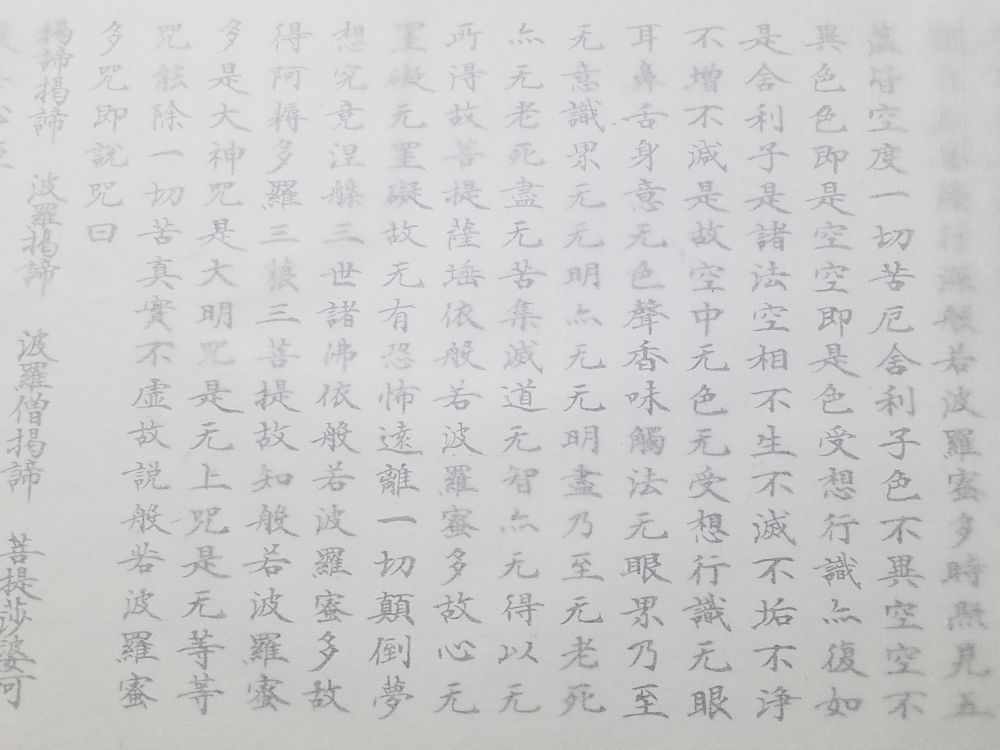 行深般若波羅蜜多時照見五
蘊皆空度一切苦厄舍利子色不異空空不
異色色即是空空即是色受想行識亦復如
是舍利子是諸法空相不生不滅不垢不浄
不增不減是故空中无色无受想行識无眼
耳鼻舌身意无色聲香味觸法无眼界乃至
无意識界无无明亦无无明盡乃至无老死
亦无老死盡无苦集滅道无智亦无得以无
所得故菩提薩埵依般若波羅蜜多故心无
罣礙无罣礙故无有恐怖遠離一切顛倒夢
想究竟涅槃三世諸佛依般若波羅蜜多故
得阿耨多羅三藐三菩提故知般若波羅蜜
多是大神咒是大明咒是无上咒是无等等
咒能除一切苦真實不虛故説般若波羅蜜
多咒即說咒曰
揭諦揭諦 波羅揭諦 波羅僧揭諦 菩提莎婆訶
心